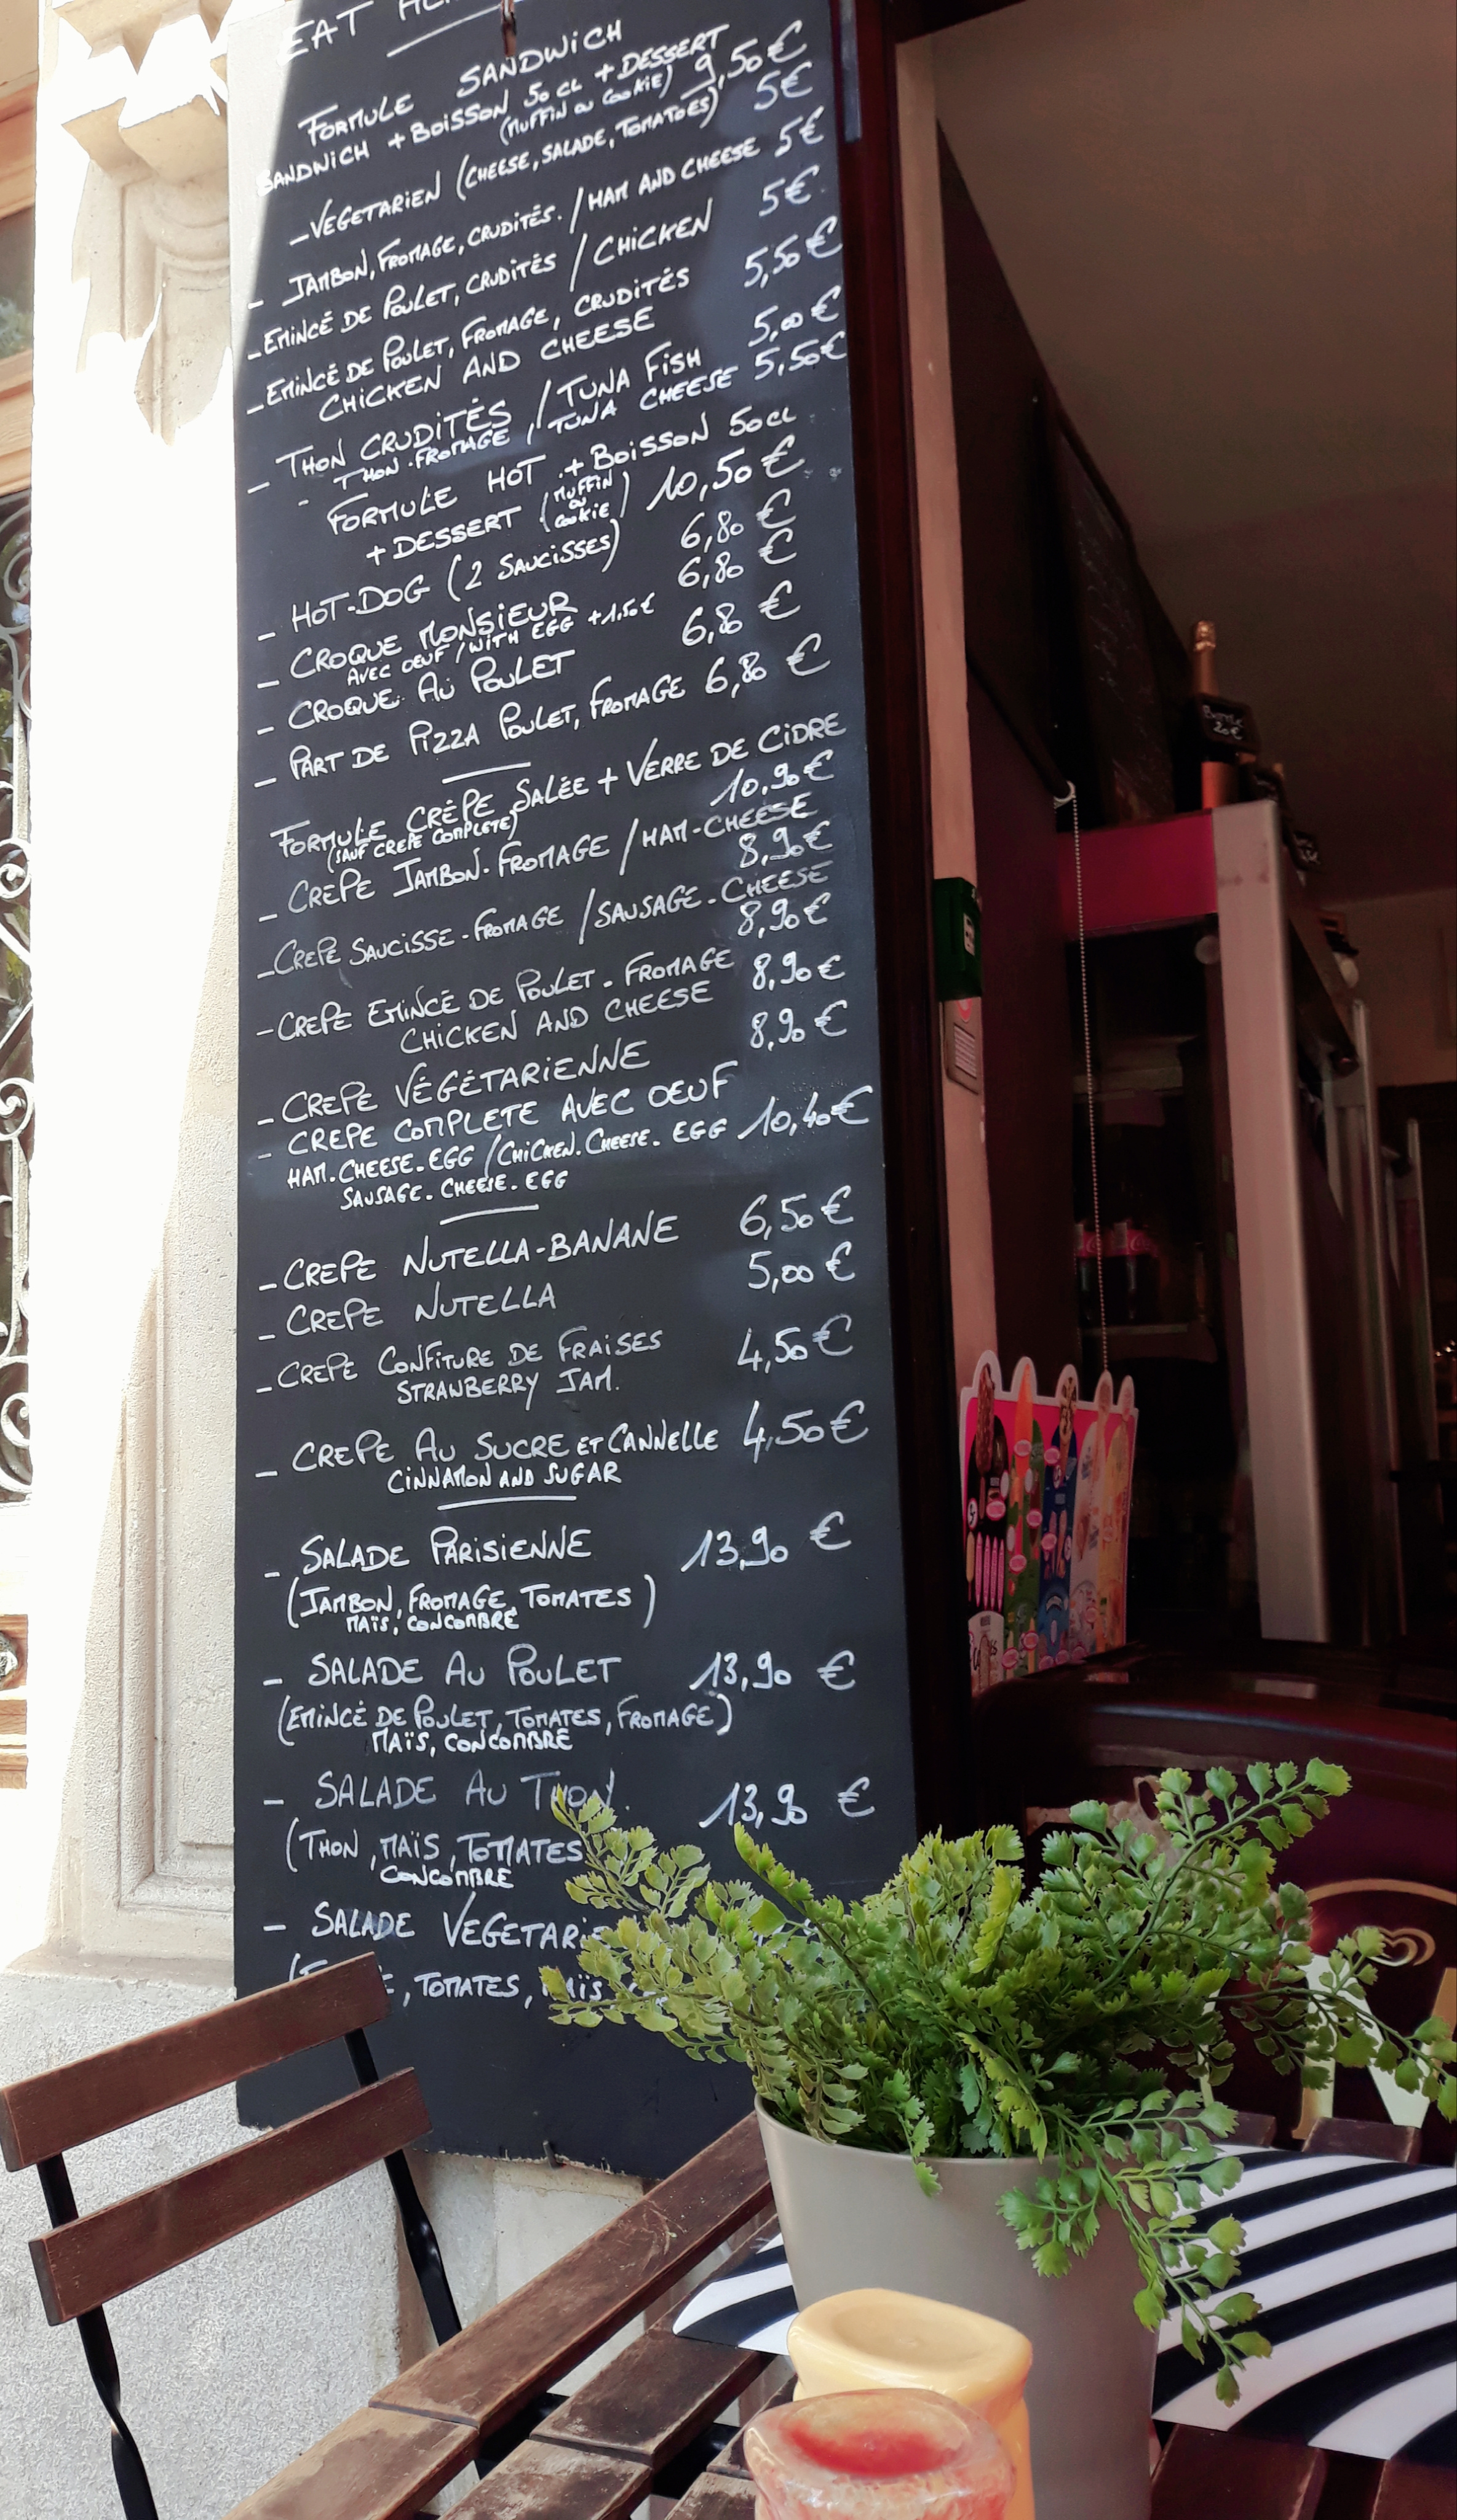 EAT
FORMULE SANDWICH
SANDWICH + BOISSON 50 CL + DESSERT
(MUFFIN OU COOKIE) 9,50 €
- VEGETARIEN (CHEESE, SALADE, TOMATOES) 5€
- JAMBON, FROMAGE, CRUDITÉS. / HAM AND CHEESE 5€
- EMINCÉ DE POULET, CRUDITÉS / CHICKEN 5€
- EMINCÉ DE POULET, FROMAGE, CRUDITÉS 5,50€
CHICKEN AND CHEESE
- THON CRUDITÉS / TUNA FISH 5,00€
- THON-FROMAGE / TUNA CHEESE 5,50€
FORMULE HOT + BOISSON 50CL
+ DESSERT (MUFFIN OU COOKIE) 10,50 €
- HOT-DOG (2 SAUCISSES) 6,80 €
- CROQUE MONSIEUR 6,80 €
AVEC OEUF / WITH EGG +1.50€
- CROQUE AU POULET 6,80 €
- PART DE PIZZA POULET, FROMAGE 6,80 €
FORMULE CRÊPE SALÉE + VERRE DE CIDRE
(SAUF CREPE COMPLETE) 10,90€
- CREPE JAMBON-FROMAGE / HAM-CHEESE
8,90€
- CREPE SAUCISSE-FROMAGE / SAUSAGE-CHEESE
8,90€
- CREPE EMINCÉ DE POULET-FROMAGE 8,90€
CHICKEN AND CHEESE
- CREPE VÉGÉTARIENNE 8,90€
- CREPE COMPLETE AVEC OEUF
HAM.CHEESE.EGG / CHICKEN.CHEESE.EGG 10,40€
SAUSAGE.CHEESE.EGG
- CREPE NUTELLA-BANANE 6,50€
- CREPE NUTELLA 5,00€
- CREPE CONFITURE DE FRAISES 4,50€
STRAWBERRY JAM.
- CREPE AU SUCRE ET CANNELLE 4,50€
CINNAMON AND SUGAR
- SALADE PARISIENNE 13,90 €
(JAMBON, FROMAGE, TOMATES)
MAÏS, CONCOMBRE
- SALADE AU POULET 13,90 €
(EMINCÉ DE POULET, TOMATES, FROMAGE)
MAÏS, CONCOMBRE
- SALADE AU THON. 13,90 €
(THON, MAÏS, TOMATES
CONCOMBRE
- SALADE VEGETARI
, TOMATES, MAÏS